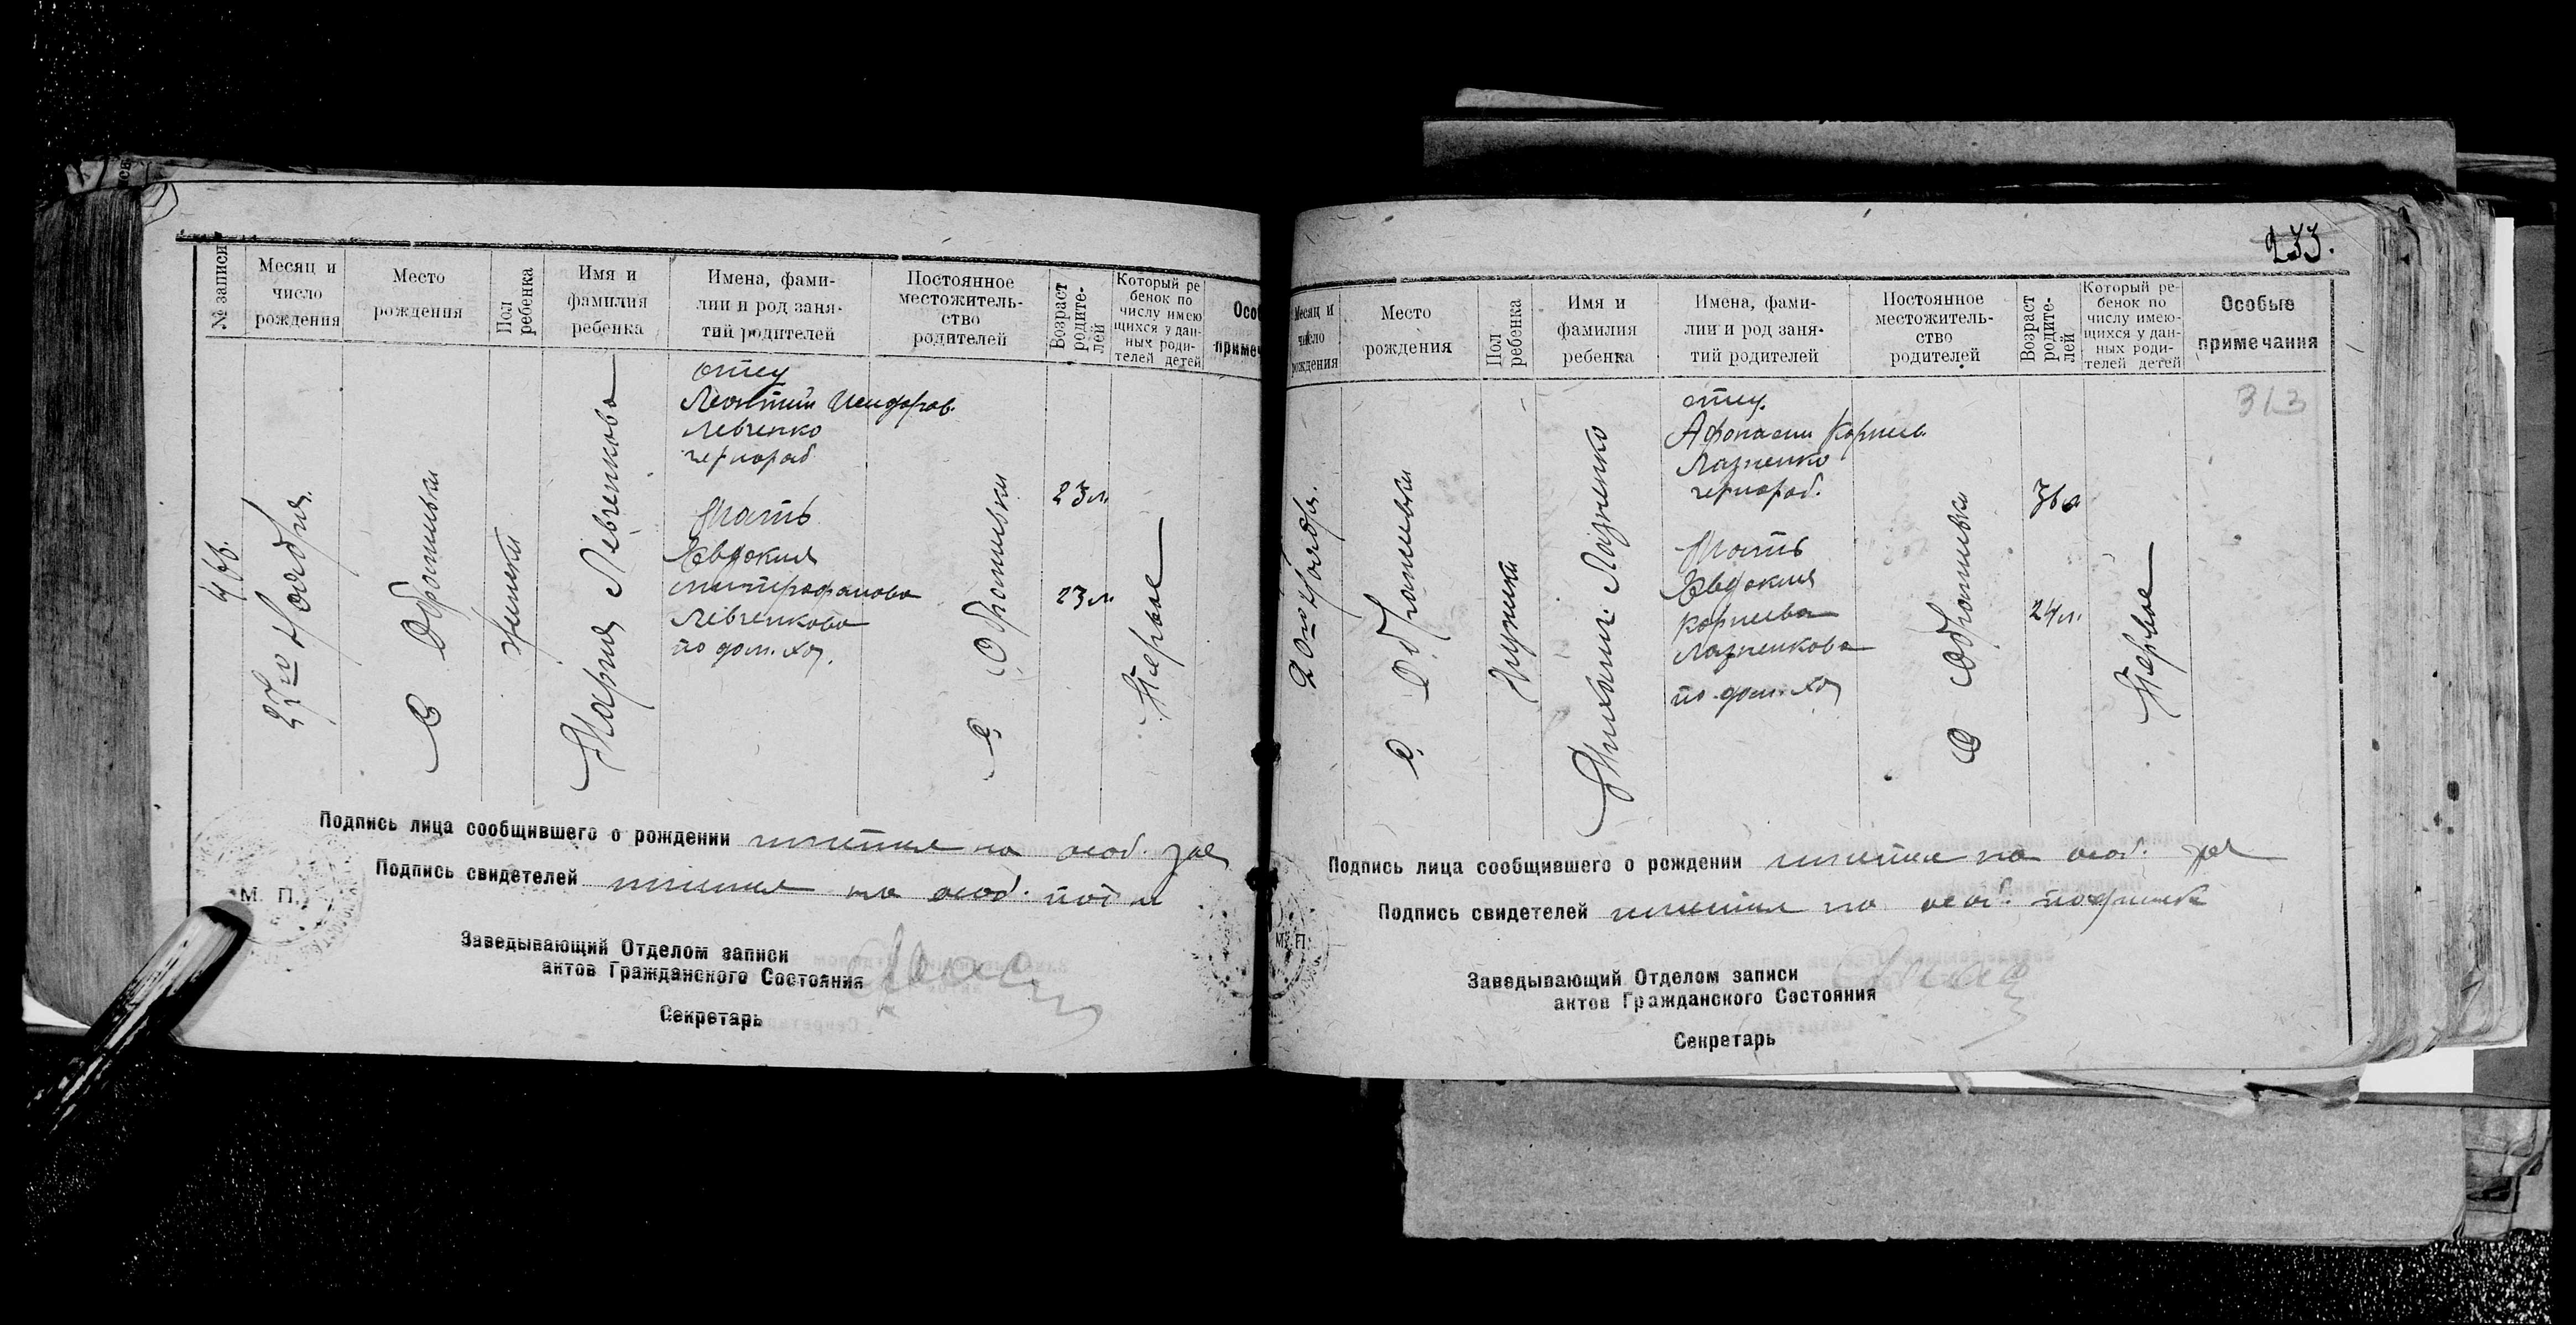 № записи
Месяц и число рождения
Место рождения
Пол ребенка
Имя и фамилия ребенка
Имена, фамилии и род занятий родителей
Постоянное местожительство родителей
Возраст родителей
Который ребенок по числу имеющихся у данных родителей детей
27го Ноября.
С
женски
Мария Левченкова
отец
Леонтий Исидоров.
Левченко
чернораб
Мать
Евдокия
Митрофанова
Левченкова
по дом. хоз.
с.
23 л.
23 л.
Первое
Подпись лица сообщившего о рождении имеется на особ. зая
Подпись свидетелей имеется на особ. под
М. П.
Заведывающий Отделом записи
актов Гражданского Состояния
Секретарь
233.
Месяц и число рождения
Место рождения
Пол ребенка
Имя и фамилия ребенка
Имена, фамилии и род занятий родителей
Постоянное местожительство родителей
Возраст родителей
Который ребенок по числу имеющихся у данных родителей детей
Особые примечания
313
20го Ноября.
с.
Мужски
Михаил Лазненко
отец.
Афонасий Корнеев
Лазненко
чернораб.
Мать
Евдокия
Корнеева
Лазненкова
по дом. хоз
С
24 л.
Первое
Подпись лица сообщившего о рождении имеется на особ. зая
Подпись свидетелей имеется на особ. подписка
М. П.
Заведывающий Отделом записи
актов Гражданского Состояния
Секретарь